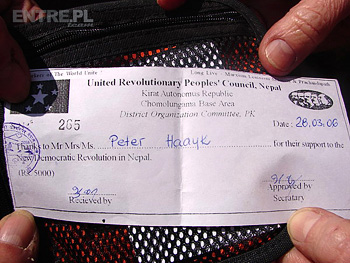 ENTRE.PL
Workers of The World Unite! Long Live Marxism Leninism & Prachandapath
United Revolutionary Peoples' Council, Nepal
Kirat Autonomus Republic
Chomolungama Base Area
District Organization Committee,
265 Date: 28.03.06
Thanks to Mr Mrs Ms. Peter Haayk for their support to the
New Democratic Revolution in Nepal.
5000)
Recieved by Approved by
Secratary